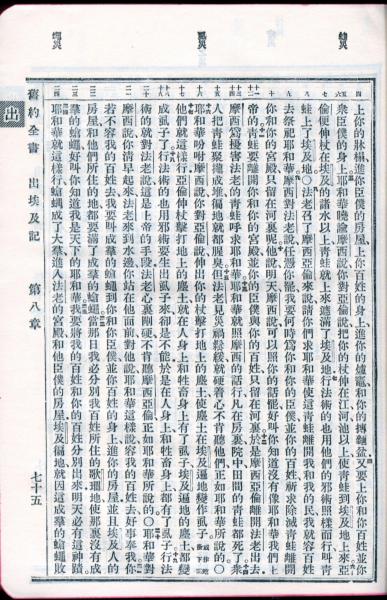 上你的牀榻進你臣僕的房屋上你百姓的身上進你的爐竈和你的摶麵盆又要上你和你百姓並你
衆臣僕的身上耶和華曉諭摩西說你對亞倫說把你的杖伸在江河池以上使青蛙到埃及地上來亞
倫便伸杖在埃及的諸水以上青蛙就上來遮滿了埃及地行法術的也用他們的邪術照樣而行叫青
蛙上了埃及地○法老召了摩西亞倫來說請你們求耶和華使這青蛙離開我和我的民我就容百姓
去祭祀耶和華摩西對法老說任憑你罷我要何時爲你和你的臣僕並你的百姓祈求除滅青蛙離開
你和你的宮殿只留在河裏呢他說明天摩西說可以照你的話罷好叫你知道沒有像耶和華我們上
帝的青蛙要離開你和你的宮殿並你的臣僕與你的百姓只留在河裏於是摩西亞倫離開法老出去
摩西爲擾害法老的青蛙呼求耶和華耶和華就照摩西的話行凡在房裏院中田間的青蛙都死了衆
人把青蛙聚攏成堆徧地就都腥臭但法老見災禍鬆緩就硬着心不肯聽他們正如耶和華所說的○
耶和華吩咐摩西說你對亞倫說伸出你的杖擊打地上的塵土使塵土在埃及遍地變作虱子
他們就這樣行亞倫伸杖擊打地上的塵土就在人身上和牲畜身上有了虱子埃及遍地的塵土都變
成虱子了行法術的也用邪術要生出虱子來卻是不能於是在人身上和牲畜身上都有了虱子行法
術的就對法老說這是上帝的手段法老心裏剛硬不肯聽摩西亞倫正如耶和華所說的○耶和華對
摩西說你清早起來法老來到水邊你站在他面前對他說耶和華這樣說容我的百姓去好事奉我你
若不容我的百姓去我要叫成羣的蒼蠅到你和你臣僕並你百姓的身上進你的房屋並且埃及人的
房屋和他們所住的地都要滿了成羣的蒼蠅當那日我必分別我百姓所住的歌珊地使那裏沒有成
羣的蒼蠅好叫你知道我是天下的耶和華我要將我的百姓和你的百姓分別出來明天必有這神蹟
耶和華就這樣行蒼蠅成了大羣進入法老的宮殿和他臣僕的房屋埃及徧地就因這成羣的蒼蠅敗
舊約全書 出埃及記 第八章 七十五
出